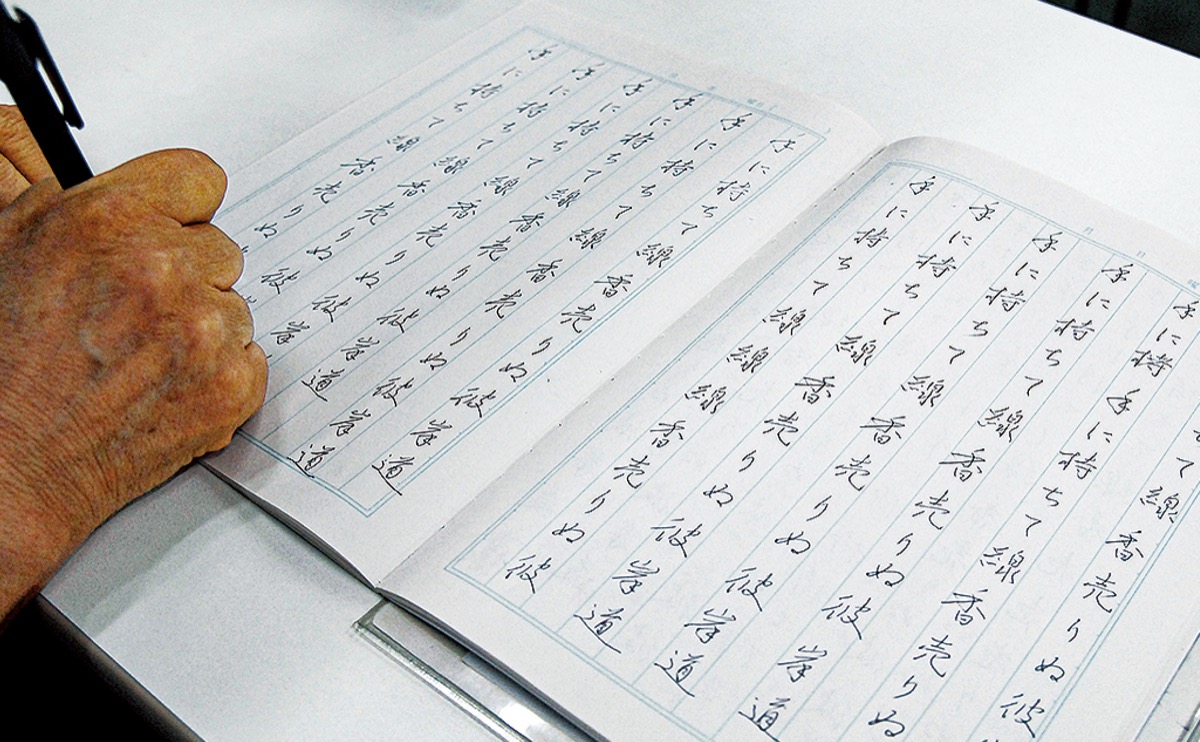 て線香売りぬ彼
手に持手に持ちて線香売りぬ
手に持ちて線香売りぬ彼岸道
手に持ちて線香売りぬ彼岸道
手に持ちて線香売りぬ彼岸道
手に持ちて線線線香売りぬ彼
手に持ちて線香売りぬ彼岸道
手に持ちて線香売りぬ彼岸道
手に持ちて線香売りぬ彼岸道
手に持ちて線香売りぬ彼岸
手に持ちて線香売りぬ彼
手に持ちて線香売りぬ